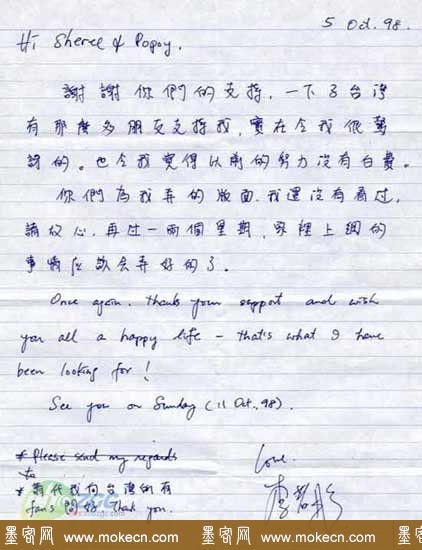 5 Oct. 98.
Hi Sheree & Popoy,
謝謝你們的支持,一下子台灣
有那麼多朋友支持我,實在令我很驚
訝的。也令我覺得以前的努力沒有白費。
你們為我弄的版面,我還沒有看过,
請放心,再过一兩個星期,家裡上網的
事情应該会弄好的了。
Once again, thanks your support and wish
you all a happy life – that's what I have
been looking for!
See you on Sunday (11 Oct., 98).
* Please send my regards
to
* 請代我向台灣的所有
fans問好 Thank you.
Love,
李若彤
墨客网 www.mokecn.com 墨客网 www.mokecn.com